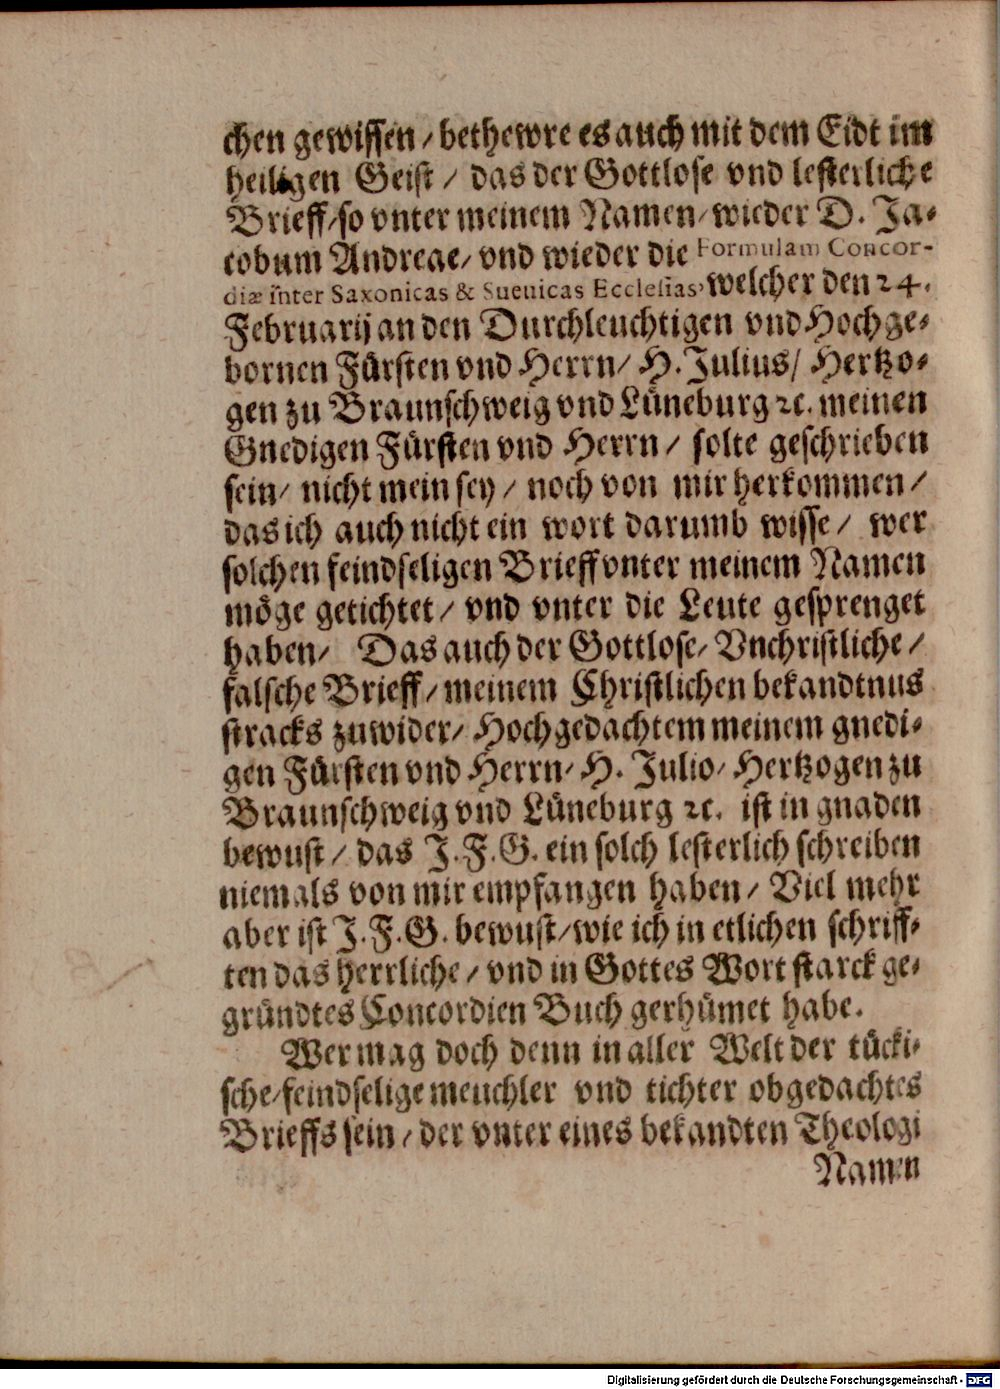 chen gewissen / bethewre es auch mit dem Eidt im
heiligen Geist / das der Gottlose vnd lesterliche
Brieff / so vnter meinem Namen / wieder D. Ja-
cobum Andreae / vnd wieder die Formulam Concor-
diæ inter Saxonicas & Sueuicas Ecclesias, welcher den 24.
Februarij an den Durchleuchtigen vnd Hochge-
bornen Fürsten vnd Herrn / H. Julius / Hertzo-
gen zu Braunschweig vnd Lüneburg ꝛc. meinen
Gnedigen Fürsten vnd Herrn / solte geschrieben
sein / nicht mein sey / noch von mir herkommen /
das ich auch nicht ein wort darumb wisse / wer
solchen feindseligen Brieff vnter meinem Namen
möge getichtet / vnd vnter die Leute gesprenget
haben / Das auch der Gottlose / Vnchristliche /
falsche Brieff / meinem Christlichen bekandtnus
stracks zuwider / Hochgedachtem meinem gnedi-
gen Fürsten vnd Herrn / H. Julio / Hertzogen zu
Braunschweig vnd Lüneburg ꝛc. ist in gnaden
bewust / das J. F. G. ein solch lesterlich schreiben
niemals von mir empfangen haben / Viel mehr
aber ist J. F. G. bewust / wie ich in etlichen schriff-
ten das herrliche / vnd in Gottes Wort starck ge-
gründtes Concordien Buch gerhümet habe.
Wer mag doch denn in aller Welt der tücki-
sche / feindselige meuchler vnd tichter obgedachtes
Brieffs sein / der vnter eines bekandten Theologi
Namen
Digitalisierung gefördert durch die Deutsche Forschungsgemeinschaft - DFG